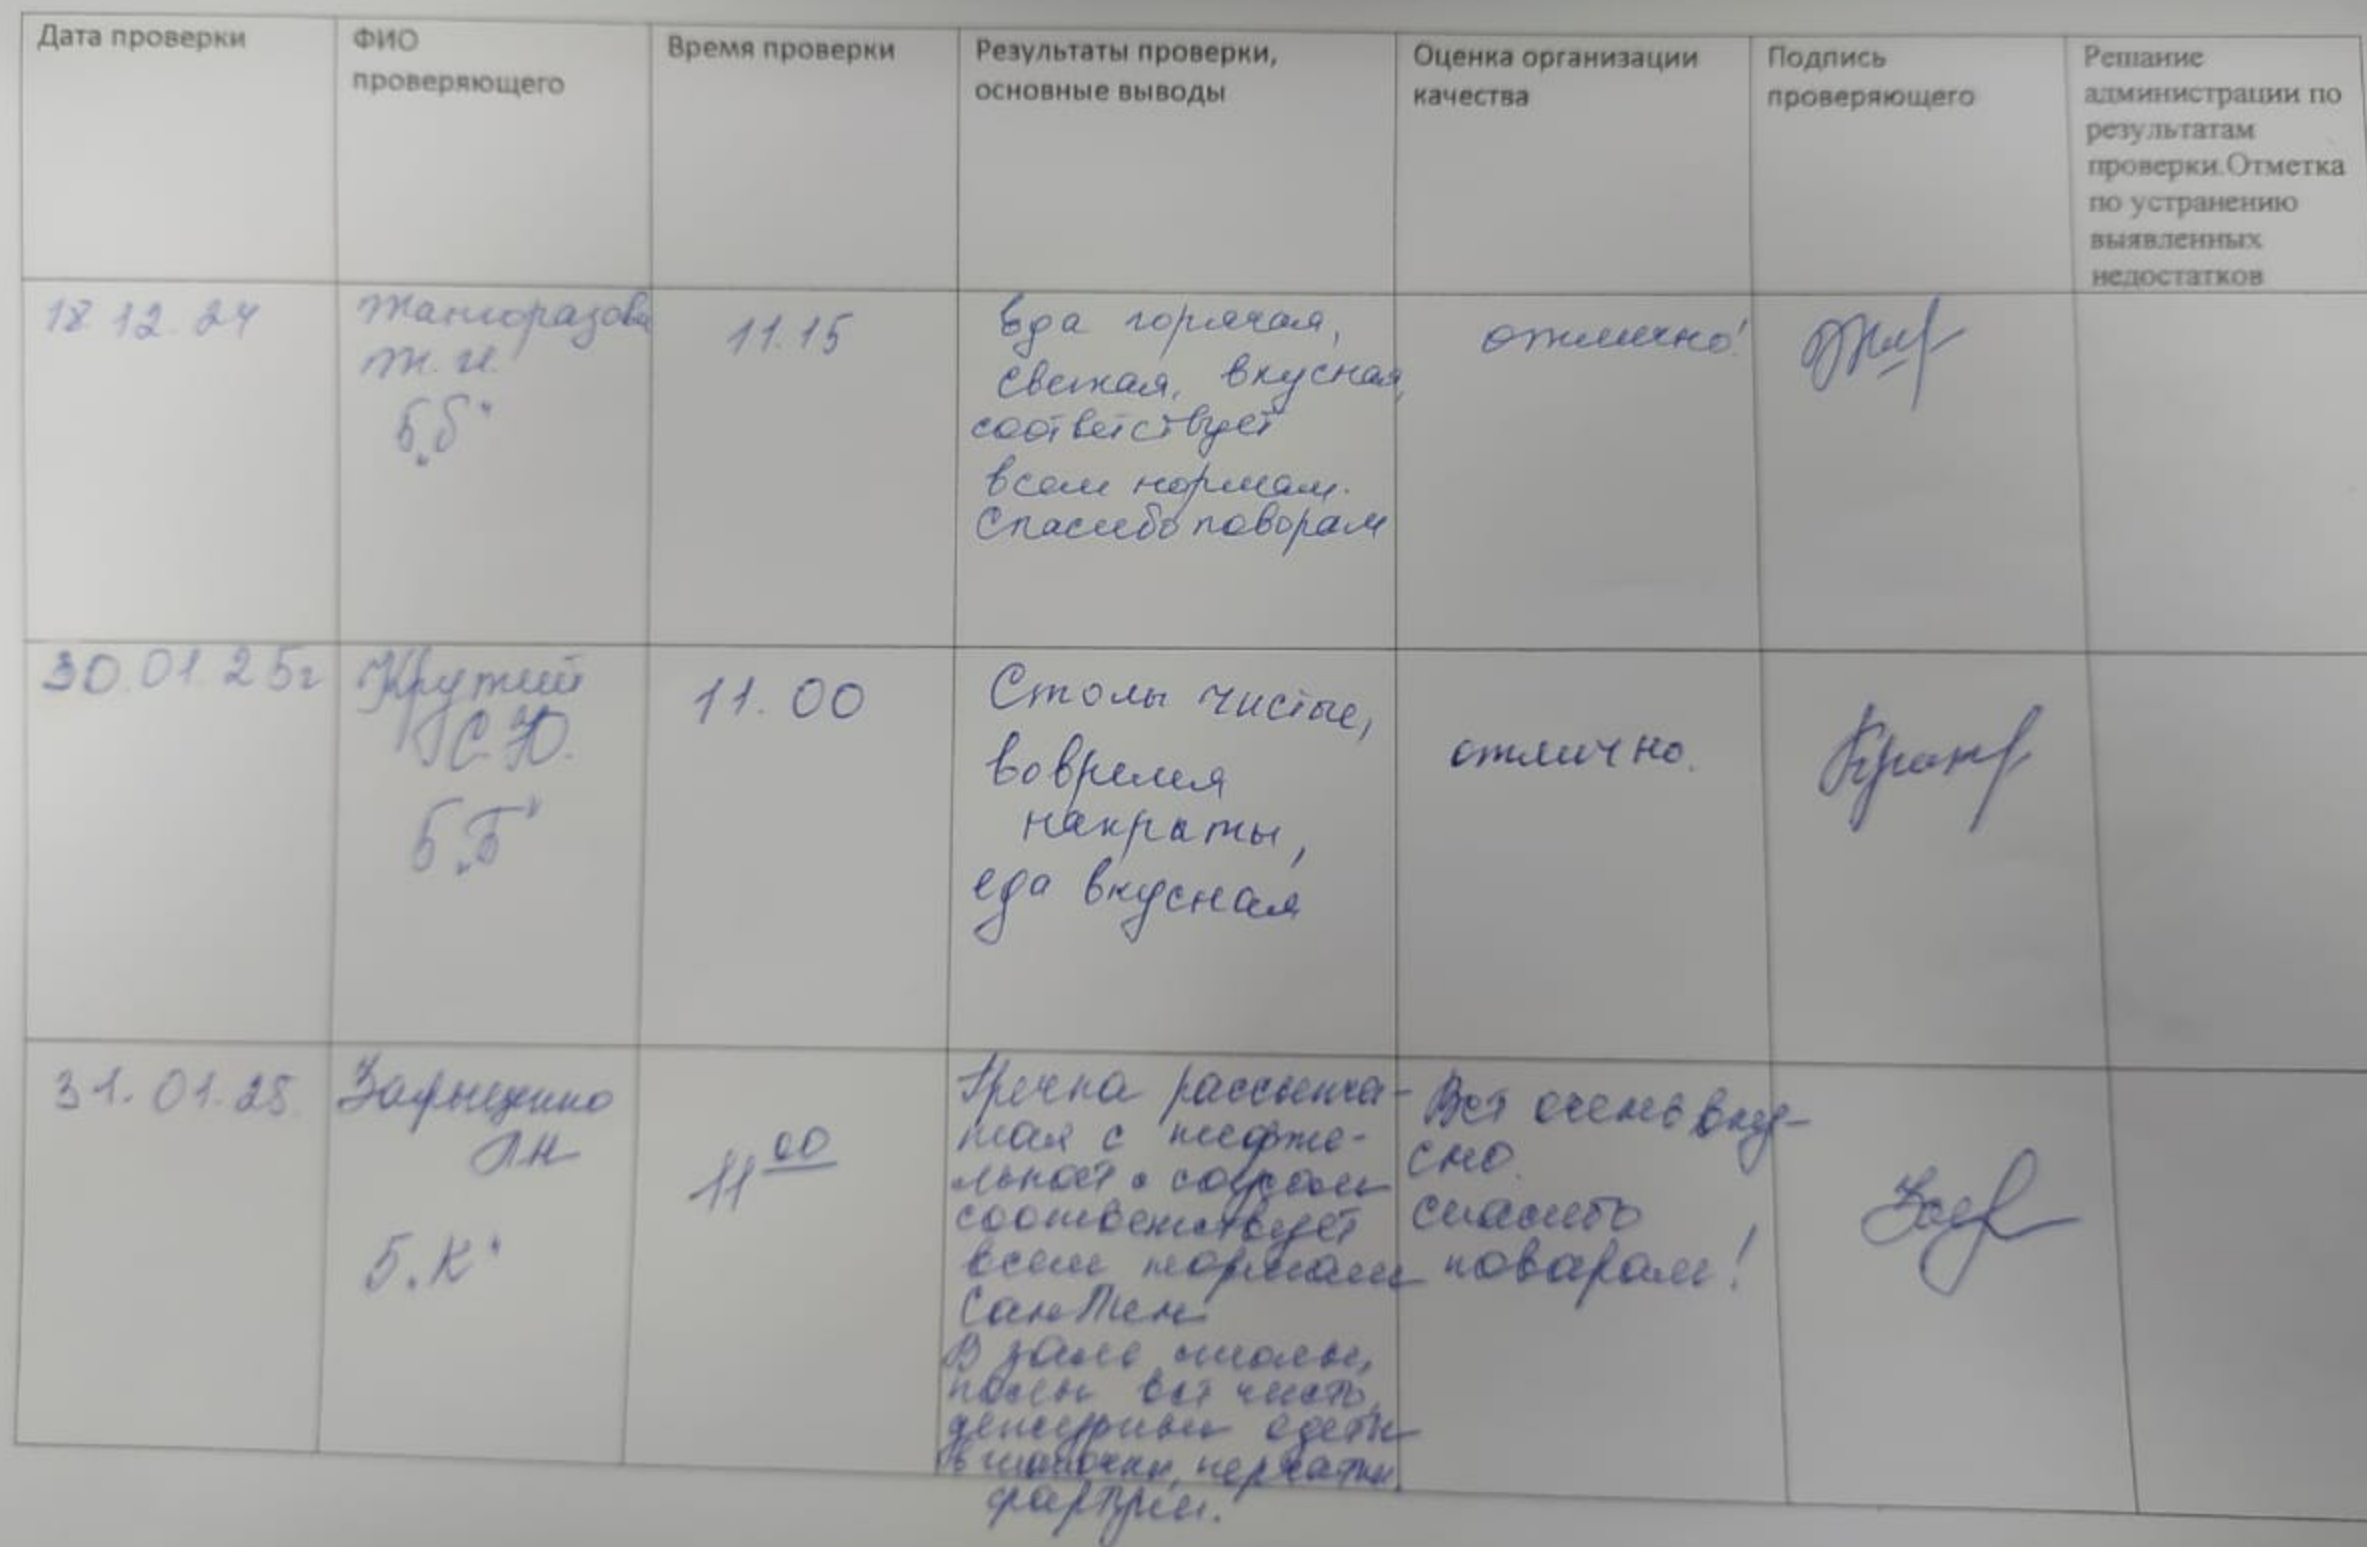 Дата проверки
ФИО
проверяющего
Время проверки
Результаты проверки,
основные выводы
Оценка организации
качества
Подпись
проверяющего
Решание
администрации по
результатам
проверки.Отметка
по устранению
выявленных
недостатков
18.12.24
Ж.И.
5 „Б"
11.15
Еда горячая,
свежая, вкусная,
соответствует
всем нормам.
Спасибо поворам
отлично!
30.01.25г
С.Ю.
5 „Б"
11.00
Столы чистые,
вовремя
накраты,
еда вкусная
отлично.
31.01.25.
5 „К"
11 00
Гречка рассыпча-
тая с
соответствует
всем нормам
СанПен
В зале столы,
полы всё чисто,
дежурные одеты
в шапочки, перчатки
фартуки.
Всё очень вку-
сно.
спасибо
поварам!